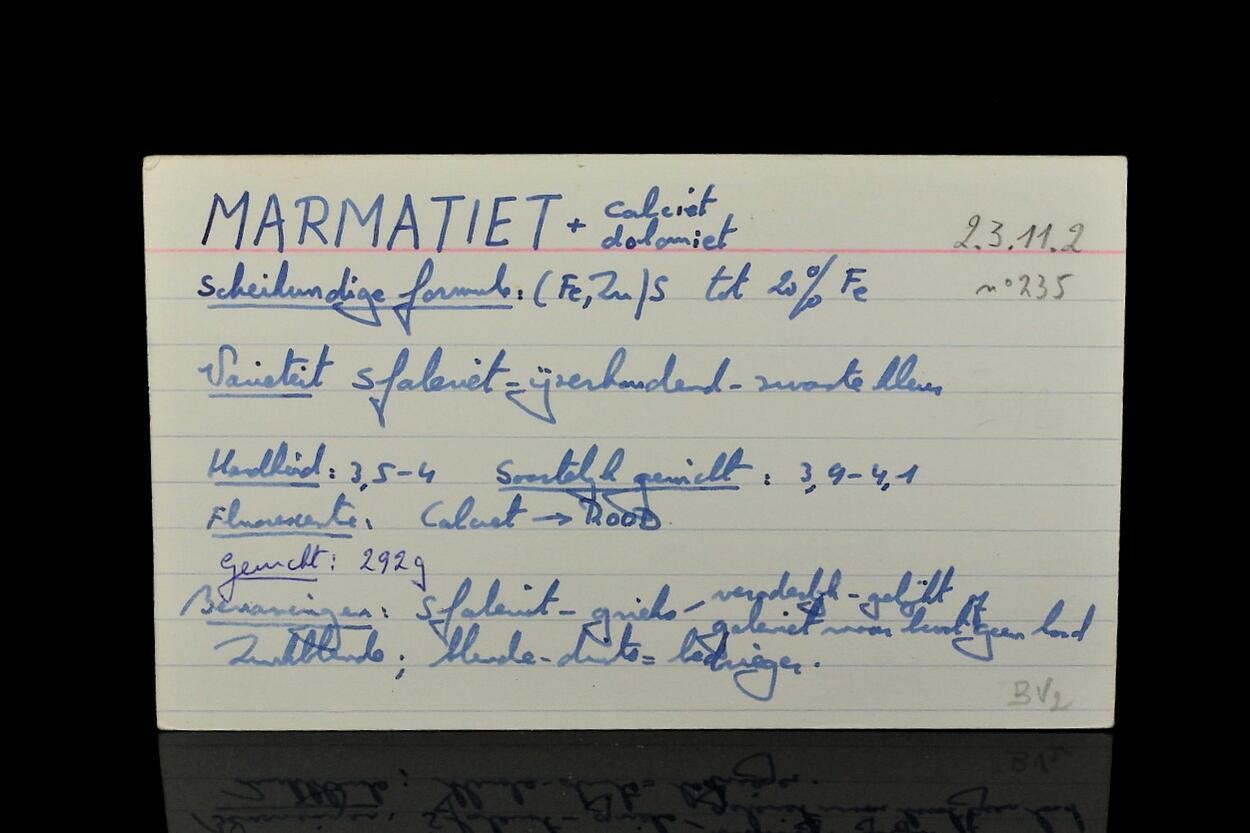 MARMATIET + calciet
dolomiet
2.3.11.2
Scheikundige formule: (Fe, Zn)S tot 20% Fe
n° 235
Variëteit sfaleriet = ijzerhoudend - zwarte kleur
Hardheid: 3,5-4 Soortelijk gewicht: 3,9-4,1
Fluorescentie: Calciet → ROOD
Gewicht: 292g
Benamingen: Sfaleriet - grieks - verraderlijk - gelijkt op
galeniet maar bevat geen lood
Zinkblende; blende - duits = bedrieger.
BV2